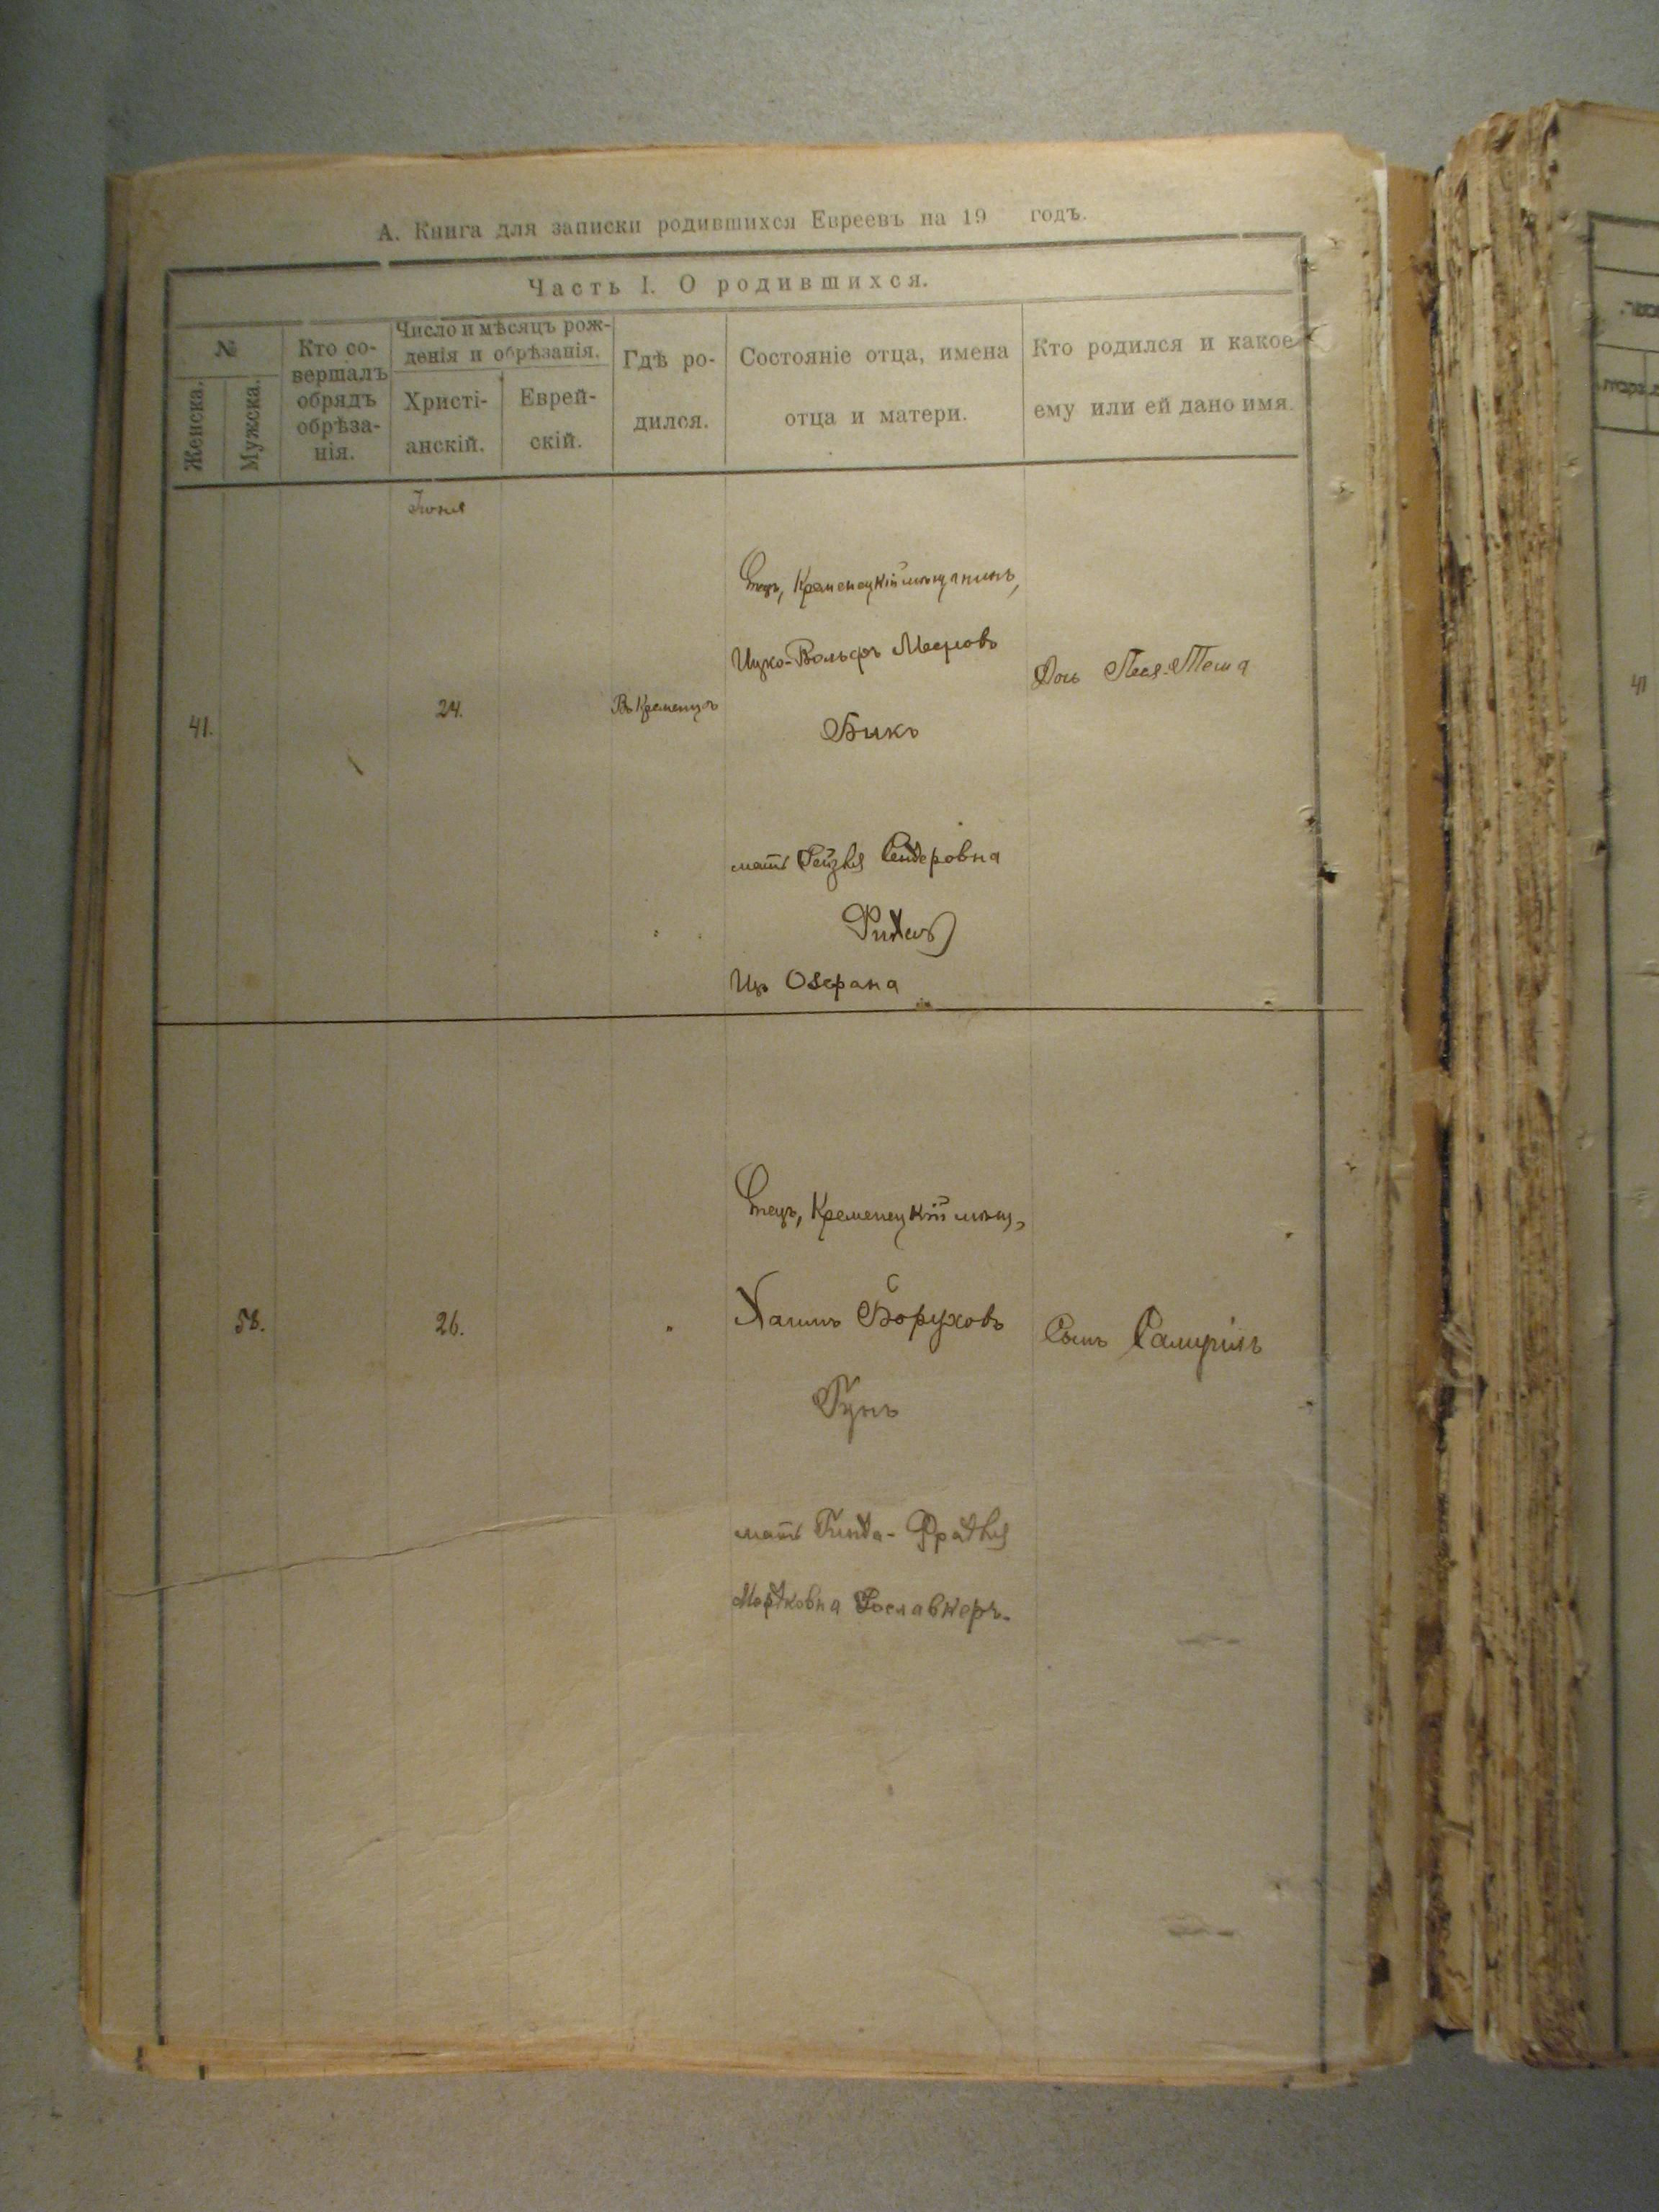 А. Книга для записки родившихся Евреевъ на 19 годъ.
Часть I. О родившихся.
№
Женска.
Мужска.
Кто со-
вершалъ
обрядъ
обрѣза-
нія.
Число и мѣсяцъ рож-
денія и обрѣзанія.
Христі-
анскій.
Еврей-
скій.
Гдѣ ро-
дился.
Состояніе отца, имена
отца и матери.
Кто родился и какое
ему или ей дано имя.
Іюня
41.
24.
Въ Кременцѣ
Отецъ, Кременецкій мѣщанинъ,
Ицко-Вольфъ Мееровъ
Бикъ
мать Рейзя Сендеровна
Изъ Озерана
Дочь Песя-Тема
58.
26.
"
Отецъ, Кременецкій мѣщ,
Хаимъ Боруховъ
мать Гинда-
Мордковна
Сынъ
41